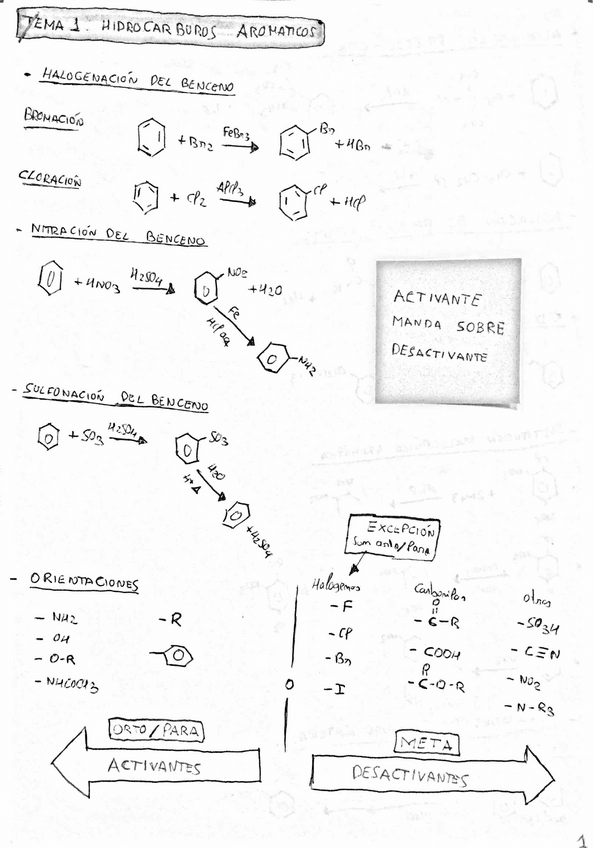 TEMA 1. HIDROCARBUROS AROMATICOS
- HALOGENACIÓN DEL BENCENO
BROMACIÓN
+ Br2 FeBr3 Br + HBr
CLORACIÓN
+ Cl2 AlCl3 Cl + HCl
- NITRACIÓN DEL BENCENO
+ HNO3 H2SO4 NO2 + H2O
Fe
HCl aq
NH2
ACTIVANTE
MANDA SOBRE
DESACTIVANTE
- SULFONACIÓN DEL BENCENO
+ SO3 H2SO4 SO3
H2O
H+ Δ
+ H2SO4
EXCEPCIÓN
Son orto/para
- ORIENTACIONES
- NH2
- OH
- O-R
- NHCOCH3
- R
O
Halogenos
- F
- Cl
- Br
- I
Carbonilos
O
- C - R
- COOH
R
- C - O - R
otros
- SO3H
- C≡N
- NO2
- N - R3
ORTO/PARA
ACTIVANTES
META
DESACTIVANTES
1